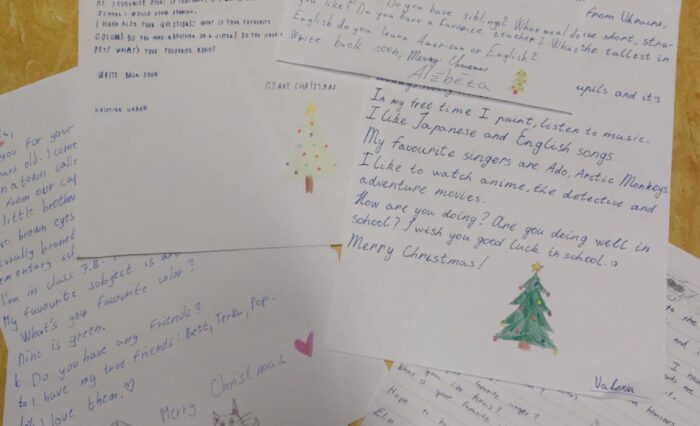 BE FAVOURITE
SCHOOL I WOULD
I HAVE ALSO YOUR QUESTIONS. WHAT IS YOUR FAVOURITE
COLOUR? DO YOU HAVE A BROTHER OR A SISTER? DO YOU HAVE A
PET? WHAT'S YOUR FAVOURITE MOVIE?
WRITE BACK SOON!
MERRY CHRISTMAS
KRISTIAN URBAN
from Ukraine,
Do you have siblings? What
you like? Do you have a favorite teacher? What the tallest in
English do you learn American or English?
Write back soon, Merry Christmas
Alžběta
upils and it's
In my free time I paint, listen to music.
I like Japanese and English songs
My favourite singers are Ado, Arctic Monkeys.
I like to watch anime, the detective and
adventure movies.
How are you doing? Are you doing well in
school? I wish you good luck in school. :)
Merry Christmas!
Valeria
you for your
ears old. I come
n a town call
from our cap
little brother
brown eyes
ementary sch
I'm in class 7.B.
My favourite subject is ar
What's your favourite color?
Mine is green.
Do you have any friends?
I have my true friends: Bett, Terka, Pepi.
I love them.
Merry Christmas
you like tennis?
favorite singer?
What is your favorite
Hope to